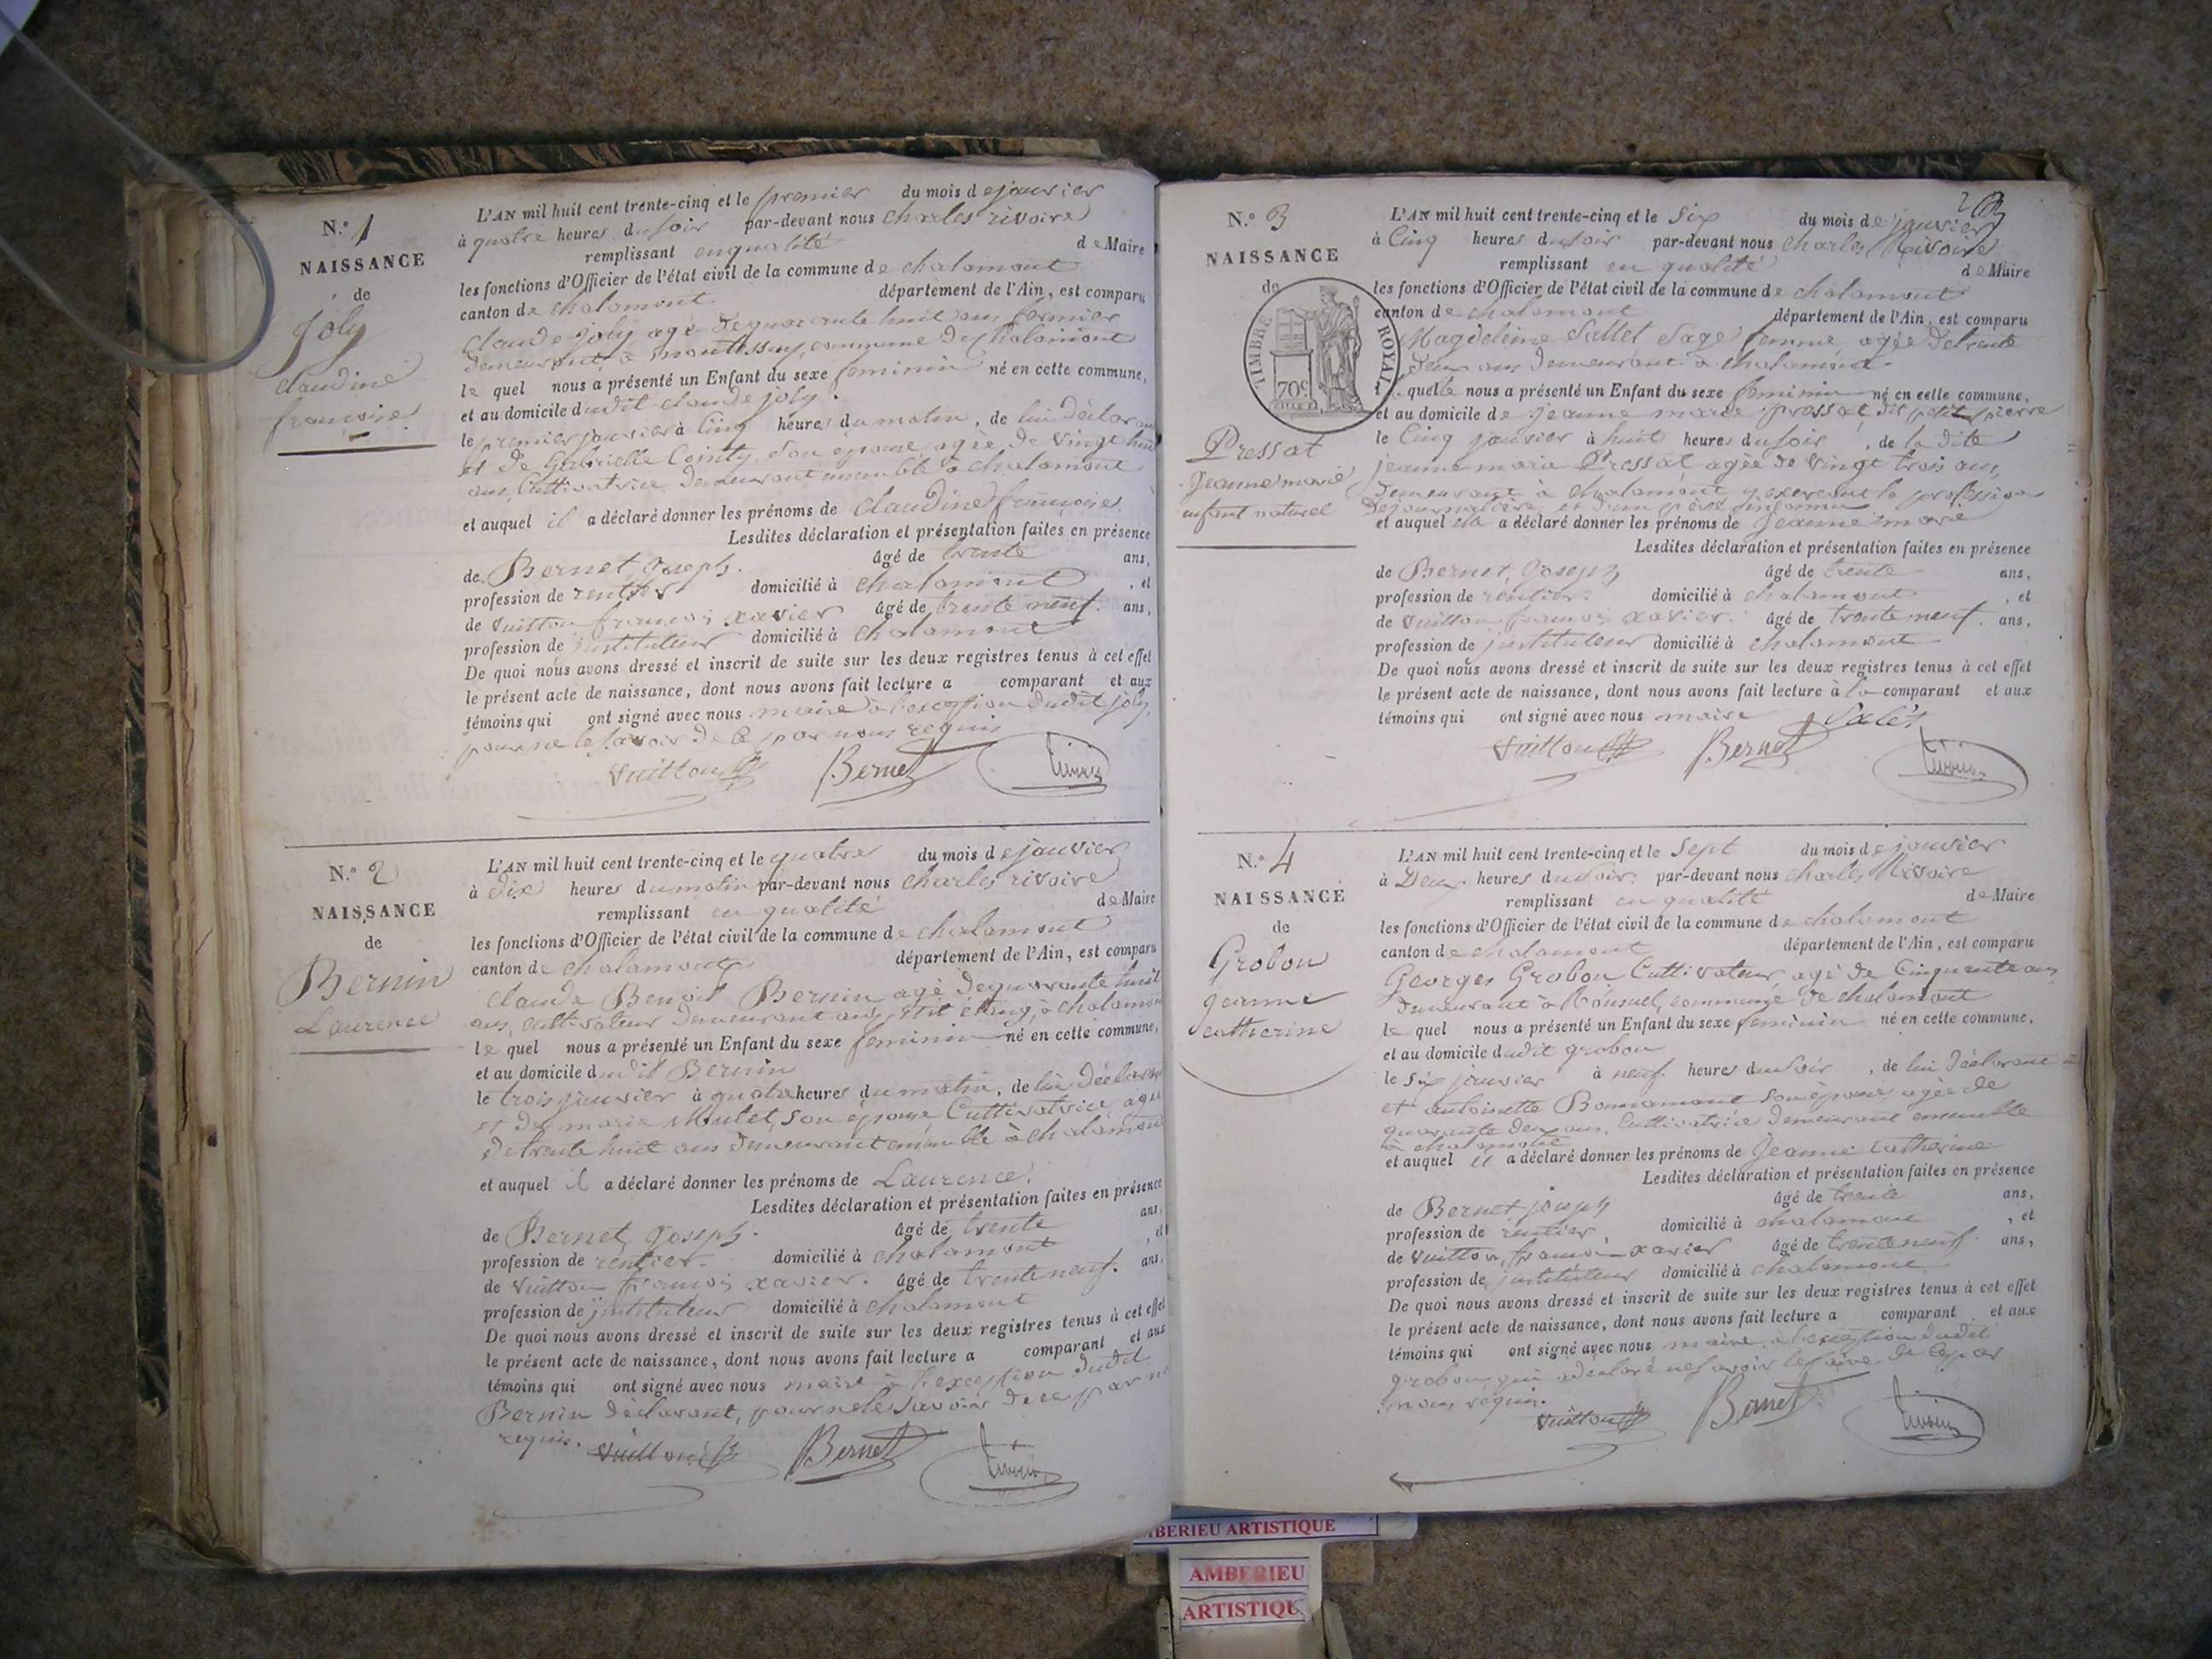 N.º 1
NAISSANCE
de
Joly
claudine
françoise
L'AN mil huit cent trente-cinq et le premier du mois de janvier
à quatre heures du soir par-devant nous charles rivoire
remplissant en qualité de Maire
les fonctions d'Officier de l'état civil de la commune de chalamont
canton de chalamont département de l'Ain, est comparu
claude joly agé de quarante huit ans fermier
demeurant à montessuy, commune de chalamont
le quel nous a présenté un Enfant du sexe feminin né en cette commune,
et au domicile dudit claude joly.
le premier janvier à Cinq heures du matin, de lui déclarant
et de Gabrielle Cointy son épouse agée de vingt huit
ans, Cultivatrice demeurant ensemble à chalamont
et auquel il a déclaré donner les prénoms de Claudine françoise
Lesdites déclaration et présentation faites en présence
de Bernet, Joseph. âgé de trente ans,
profession de rentier domicilié à chalamont, et
de Vuitton françois xavier âgé de trente neuf. ans,
profession de instituteur domicilié à chalamont
De quoi nous avons dressé et inscrit de suite sur les deux registres tenus à cet effet
le présent acte de naissance, dont nous avons fait lecture a comparant et aux
témoins qui ont signé avec nous maire à l'exception dudit joly,
pour ne le savoir de ce par nous requis
Vuitton Bernet
N.º 2
NAISSANCE
de
Bernin
Laurence
L'AN mil huit cent trente-cinq et le quatre du mois de janvier
à dix heures du matin par-devant nous charles rivoire
remplissant en qualité de Maire
les fonctions d'Officier de l'état civil de la commune de chalamont
canton de chalamont département de l'Ain, est comparu
claude Benoit Bernin agé de quarante huit
ans, cultivateur demeurant au petit étang, à chalamont
le quel nous a présenté un Enfant du sexe feminin né en cette commune,
et au domicile dudit Bernin
le trois janvier à quatre heures du matin, de lui déclarant
et de marie Mulet, son épouse Cultivatrice, agée
de trente huit ans demeurant ensemble à chalamont
et auquel il a déclaré donner les prénoms de Laurence.
Lesdites déclaration et présentation faites en présence
de Bernet, Joseph. âgé de trente ans,
profession de rentier. domicilié à chalamont, et
de Vuitton françois xavier. âgé de trente neuf. ans,
profession de instituteur domicilié à chalamont
De quoi nous avons dressé et inscrit de suite sur les deux registres tenus à cet effet
le présent acte de naissance, dont nous avons fait lecture a comparant et aux
témoins qui ont signé avec nous maire à l'exception dudit
Bernin déclarant, pour ne le savoir de ce par
requis. Vuitton Bernet
N.º 3
NAISSANCE
de
TIMBRE ROYAL
70c
Pressat
Jeanne marie
enfant naturel
L'AN mil huit cent trente-cinq et le Six du mois de janvier
à Cinq heures du soir par-devant nous charles Rivoire
remplissant en qualité de Maire
les fonctions d'Officier de l'état civil de la commune de chalamont
canton de chalamont département de l'Ain, est comparu
Magdeleine Sallet Sage femme, agée de trente
deux ans demeurant à chalamont
la quelle nous a présenté un Enfant du sexe feminin né en cette commune,
et au domicile de jeanne marie pressat, dit petit pierre
le Cinq janvier à huit heures du soir, de la dite
jeanne marie Pressat agée de vingt trois ans,
demeurant à chalamont y exercant la profession
de journalière et d'un père inconnu
et auquel elle a déclaré donner les prénoms de Jeanne marie
Lesdites déclaration et présentation faites en présence
de Bernet, Joseph âgé de trente ans,
profession de rentier. domicilié à chalamont, et
de Vuitton françois xavier. âgé de trente neuf. ans,
profession de instituteur domicilié à chalamont
De quoi nous avons dressé et inscrit de suite sur les deux registres tenus à cet effet
le présent acte de naissance, dont nous avons fait lecture à la comparant et aux
témoins qui ont signé avec nous maire
Vuitton Bernet
N.º 4
NAISSANCE
de
Grobon
jeanne
catherine
L'AN mil huit cent trente-cinq et le Sept du mois de janvier
à Deux heures du soir. par-devant nous charles Rivoire
remplissant en qualité de Maire
les fonctions d'Officier de l'état civil de la commune de chalamont
canton de chalamont département de l'Ain, est comparu
Georges Grobon Cultivateur, agé de Cinquante ans
demeurant à commune de chalamont
le quel nous a présenté un Enfant du sexe feminin né en cette commune,
et au domicile dudit grobon
le Six janvier à neuf heures du soir, de lui déclarant
et antoinette Bonnamant son épouse agée de
quarante deux ans, Cultivatrice demeurant ensemble
à chalamont
et auquel il a déclaré donner les prénoms de Jeanne Catherine
Lesdites déclaration et présentation faites en présence
de Bernet joseph âgé de trente ans,
profession de rentier domicilié à chalamont, et
de Vuitton, françois xavier âgé de trente neuf. ans,
profession de instituteur domicilié à chalamont
De quoi nous avons dressé et inscrit de suite sur les deux registres tenus à cet effet
le présent acte de naissance, dont nous avons fait lecture a comparant et aux
témoins qui ont signé avec nous maire à l'exception dudit
grobon qui a déclaré ne savoir le faire de ce par
nous requis.
Vuitton Bernet
AMBERIEU ARTISTIQUE
AMBERIEU
ARTISTIQUE